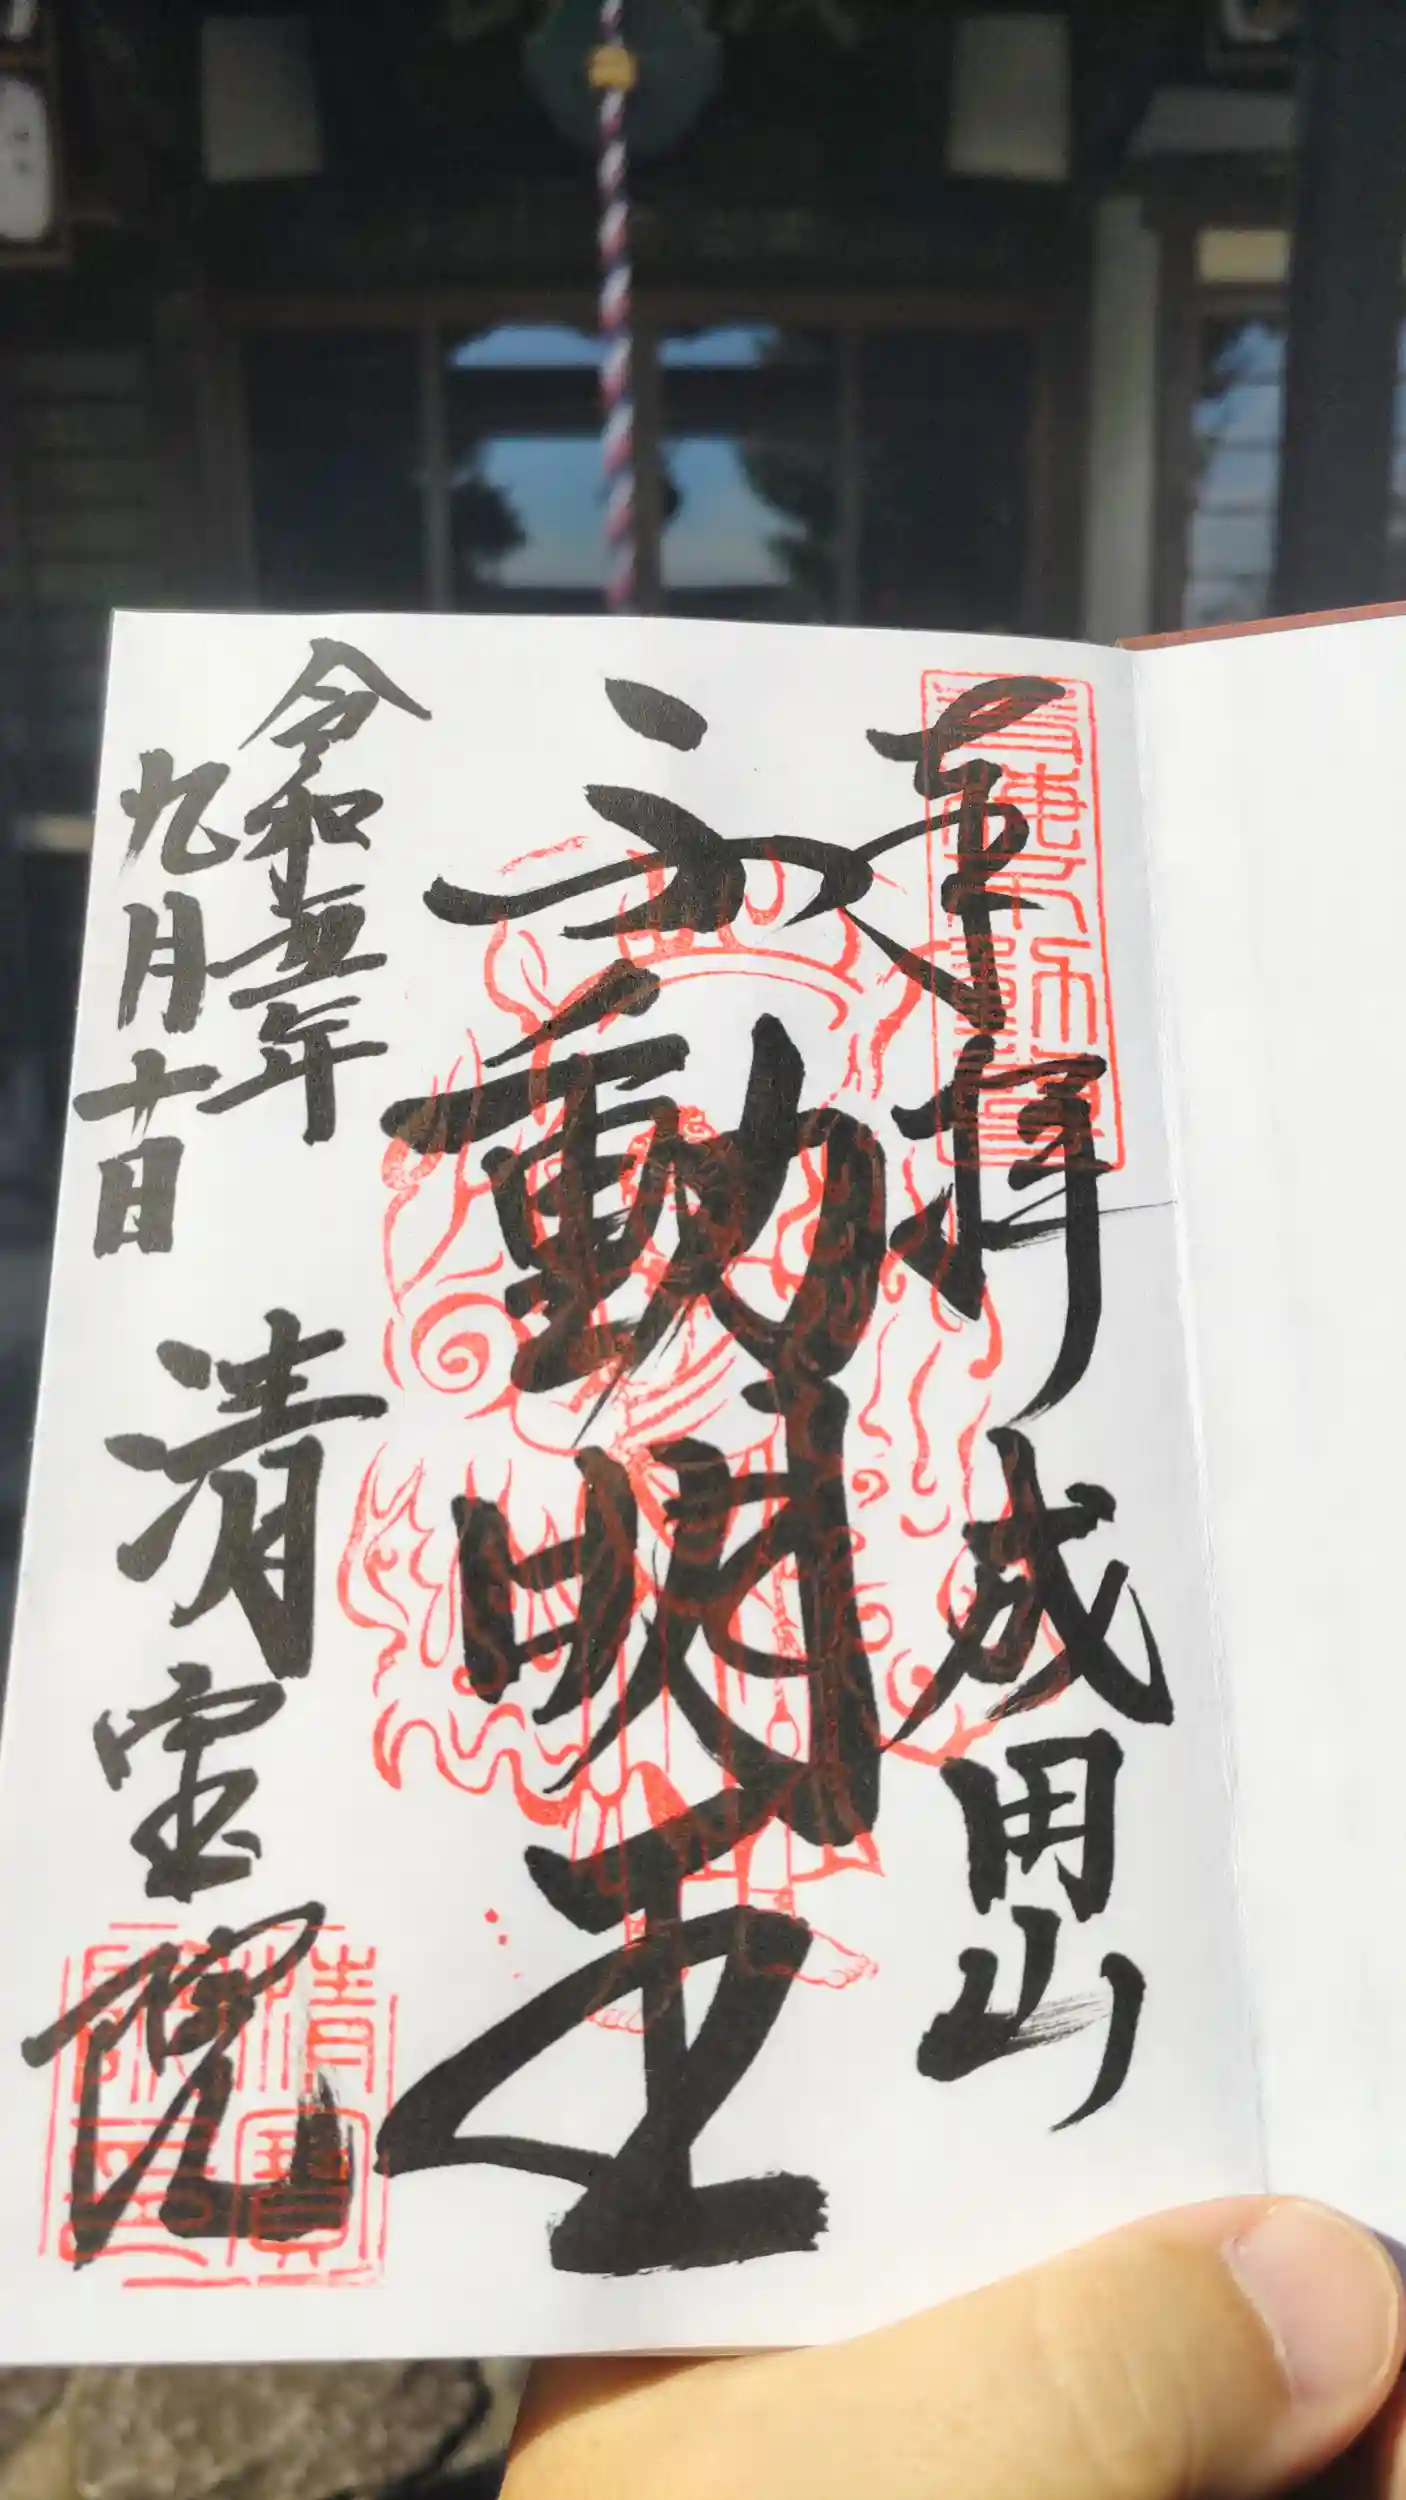 奉拝 成田山
不動明王
令和五年
九月廿日
清宝院
清寶
院印